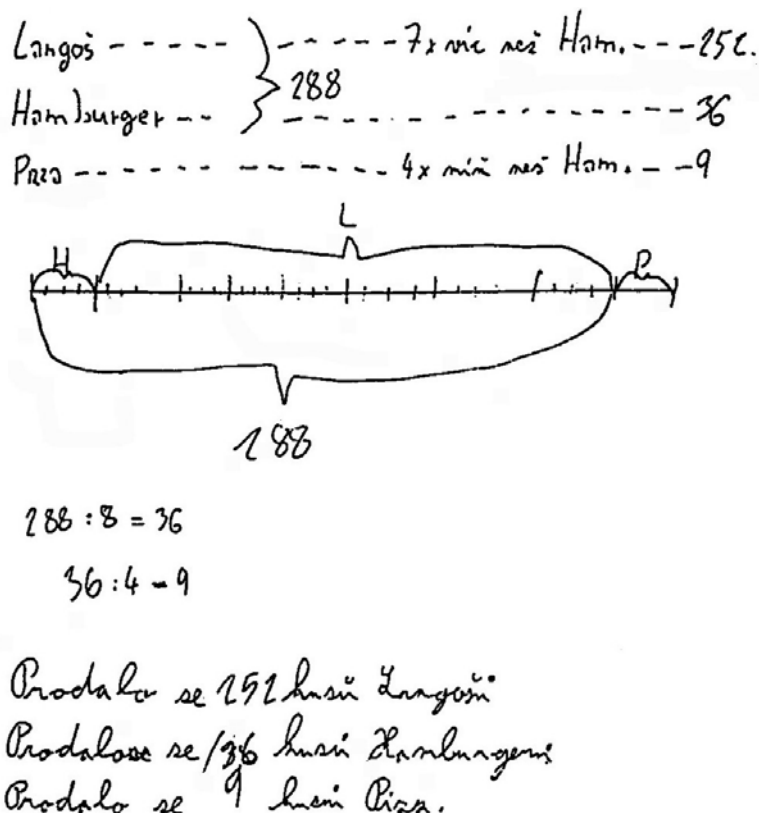 Langoš ----- } ----- 7x víc než Ham. --- 252.
288
Hamburger -- } ----- 36
Pizza ----- 4x míň než Ham. -- 9
L
H
P
288
288 : 8 = 36
36 : 4 = 9
Prodalo se 252 kusů Langoší
Prodalose se 36 kusů Hamburgerů
Prodalo se 9 kusů Pizz.